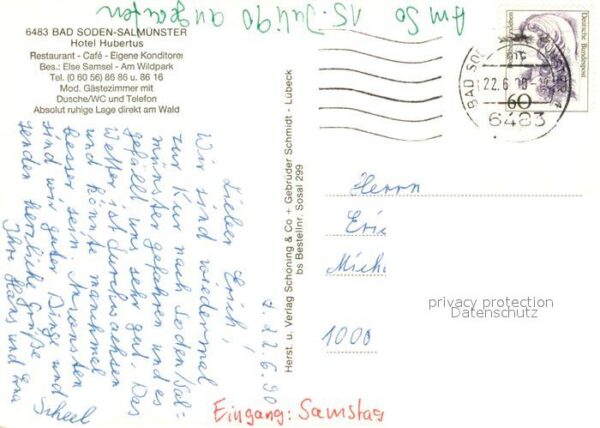 Am So
15. Juli 90 angraufen
6483 BAD SODEN-SALMÜNSTER
Hotel Hubertus
Restaurant - Café - Eigene Konditorei
Bes.: Else Samsel - Am Wildpark
Tel. (0 60 56) 86 86 u. 86 16
Mod. Gästezimmer mit
Dusche/WC und Telefon
Absolut ruhige Lage direkt am Wald
Deutsche Bundespost
60
BAD SO
22.6.90
6483
d. 22.6.90
Lieber Erich!
Wir sind wiedermal
zur Kur nach Soden/Sal-
münster gefahren und es
gefällt uns sehr gut. Das
Wetter ist durchwachsen
und könnte manchmal
besser sein. Ansonsten
sind wir guter Dinge und
senden herzliche Grüße
Ihre Hans und Erna
Scheel
Herst. u. Verlag Schöning & Co + Gebrüder Schmidt - Lübeck
bs Bestellnr. Sosal 299
Herrn
Eric
Mich
1000
privacy protection
Datenschutz
Eingang: Samstag